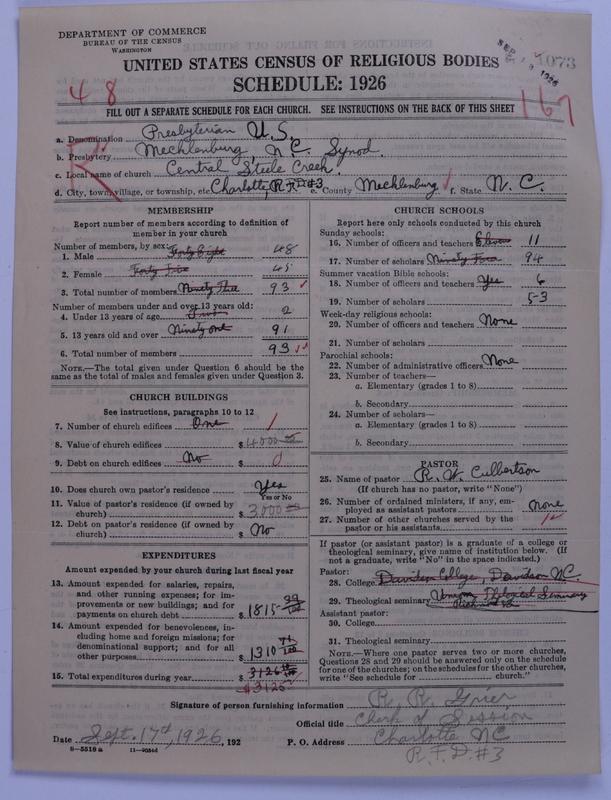 DEPARTMENT OF COMMERCE
BUREAU OF THE CENSUS
WASHINGTON
SEP 18 1926
1073
UNITED STATES CENSUS OF RELIGIOUS BODIES
SCHEDULE: 1926
48
167
FILL OUT A SEPARATE SCHEDULE FOR EACH CHURCH. SEE INSTRUCTIONS ON THE BACK OF THIS SHEET
a. Denomination Presbyterian U.S.
b. Presbytery Mecklenburg, N C Synod
c. Local name of church Central Steele Creek
d. City, town, village, or township, etc. Charlotte, R.F.D#3 e. County Mecklenburg f. State N. C.
MEMBERSHIP
Report number of members according to definition of
member in your church
Number of members, by sex:
1. Male Forty Eight 48
2. Female Forty Five 45
3. Total number of members Ninety Three 93
Number of members under and over 13 years old:
4. Under 13 years of age Two 2
5. 13 years old and over Ninety one 91
6. Total number of members 93
NOTE.—The total given under Question 6 should be
same as the total of males and females given under Question 3.
CHURCH BUILDINGS
See instructions, paragraphs 10 to 12
7. Number of church edifices One 1
8. Value of church edifices $4000
9. Debt on church edifices No $ 0
10. Does church own pastor's residence Yes
Yes or No
11. Value of pastor's residence (if owned by
church) $3,000
12. Debt on pastor's residence (if owned by
church) $ No
EXPENDITURES
Amount expended by your church during last fiscal year
13. Amount expended for salaries, repairs,
and other running expenses; for im-
provements or new buildings; and for
payments on church debt $1815
14. Amount expended for benevolences, in-
cluding home and foreign missions; for
denominational support; and for all
other purposes $1310 71/100
15. Total expenditures during year $3126 10/100
$3125
CHURCH SCHOOLS
Report here only schools conducted by this church
Sunday schools:
16. Number of officers and teachers Eleven 11
17. Number of scholars Ninety Four 94
Summer vacation Bible schools:
18. Number of officers and teachers Yes 6
19. Number of scholars 53
Week-day religious schools:
20. Number of officers and teachers None
21. Number of scholars
Parochial schools:
22. Number of administrative officers None
23. Number of teachers—
a. Elementary (grades 1 to 8)
b. Secondary
24. Number of scholars—
a. Elementary (grades 1 to 8)
b. Secondary
PASTOR
25. Name of pastor R. W. Culbertson
(If church has no pastor, write "None")
26. Number of ordained ministers, if any, em-
ployed as assistant pastors None
27. Number of other churches served by the
pastor or his assistants
If pastor (or assistant pastor) is a graduate of a college or
theological seminary, give name of institution below. (If
not a graduate, write "No" in the space indicated.)
Pastor:
28. College Davidson College, Davidson N.C.
29. Theological seminary Union Theological Seminary
Richmond Va.
Assistant pastor:
30. College
31. Theological seminary
NOTE.—Where one pastor serves two or more churches,
Questions 28 and 29 should be answered only on the schedule
for one of the churches; on the schedules for the other churches,
write "See schedule for church."
Signature of person furnishing information R. R. Grier
Official title Clerk of Session
Date Sept. 17th, 1926, 192 P. O. Address Charlotte NC
R.F.D.#3
8—5518a 11—9034d